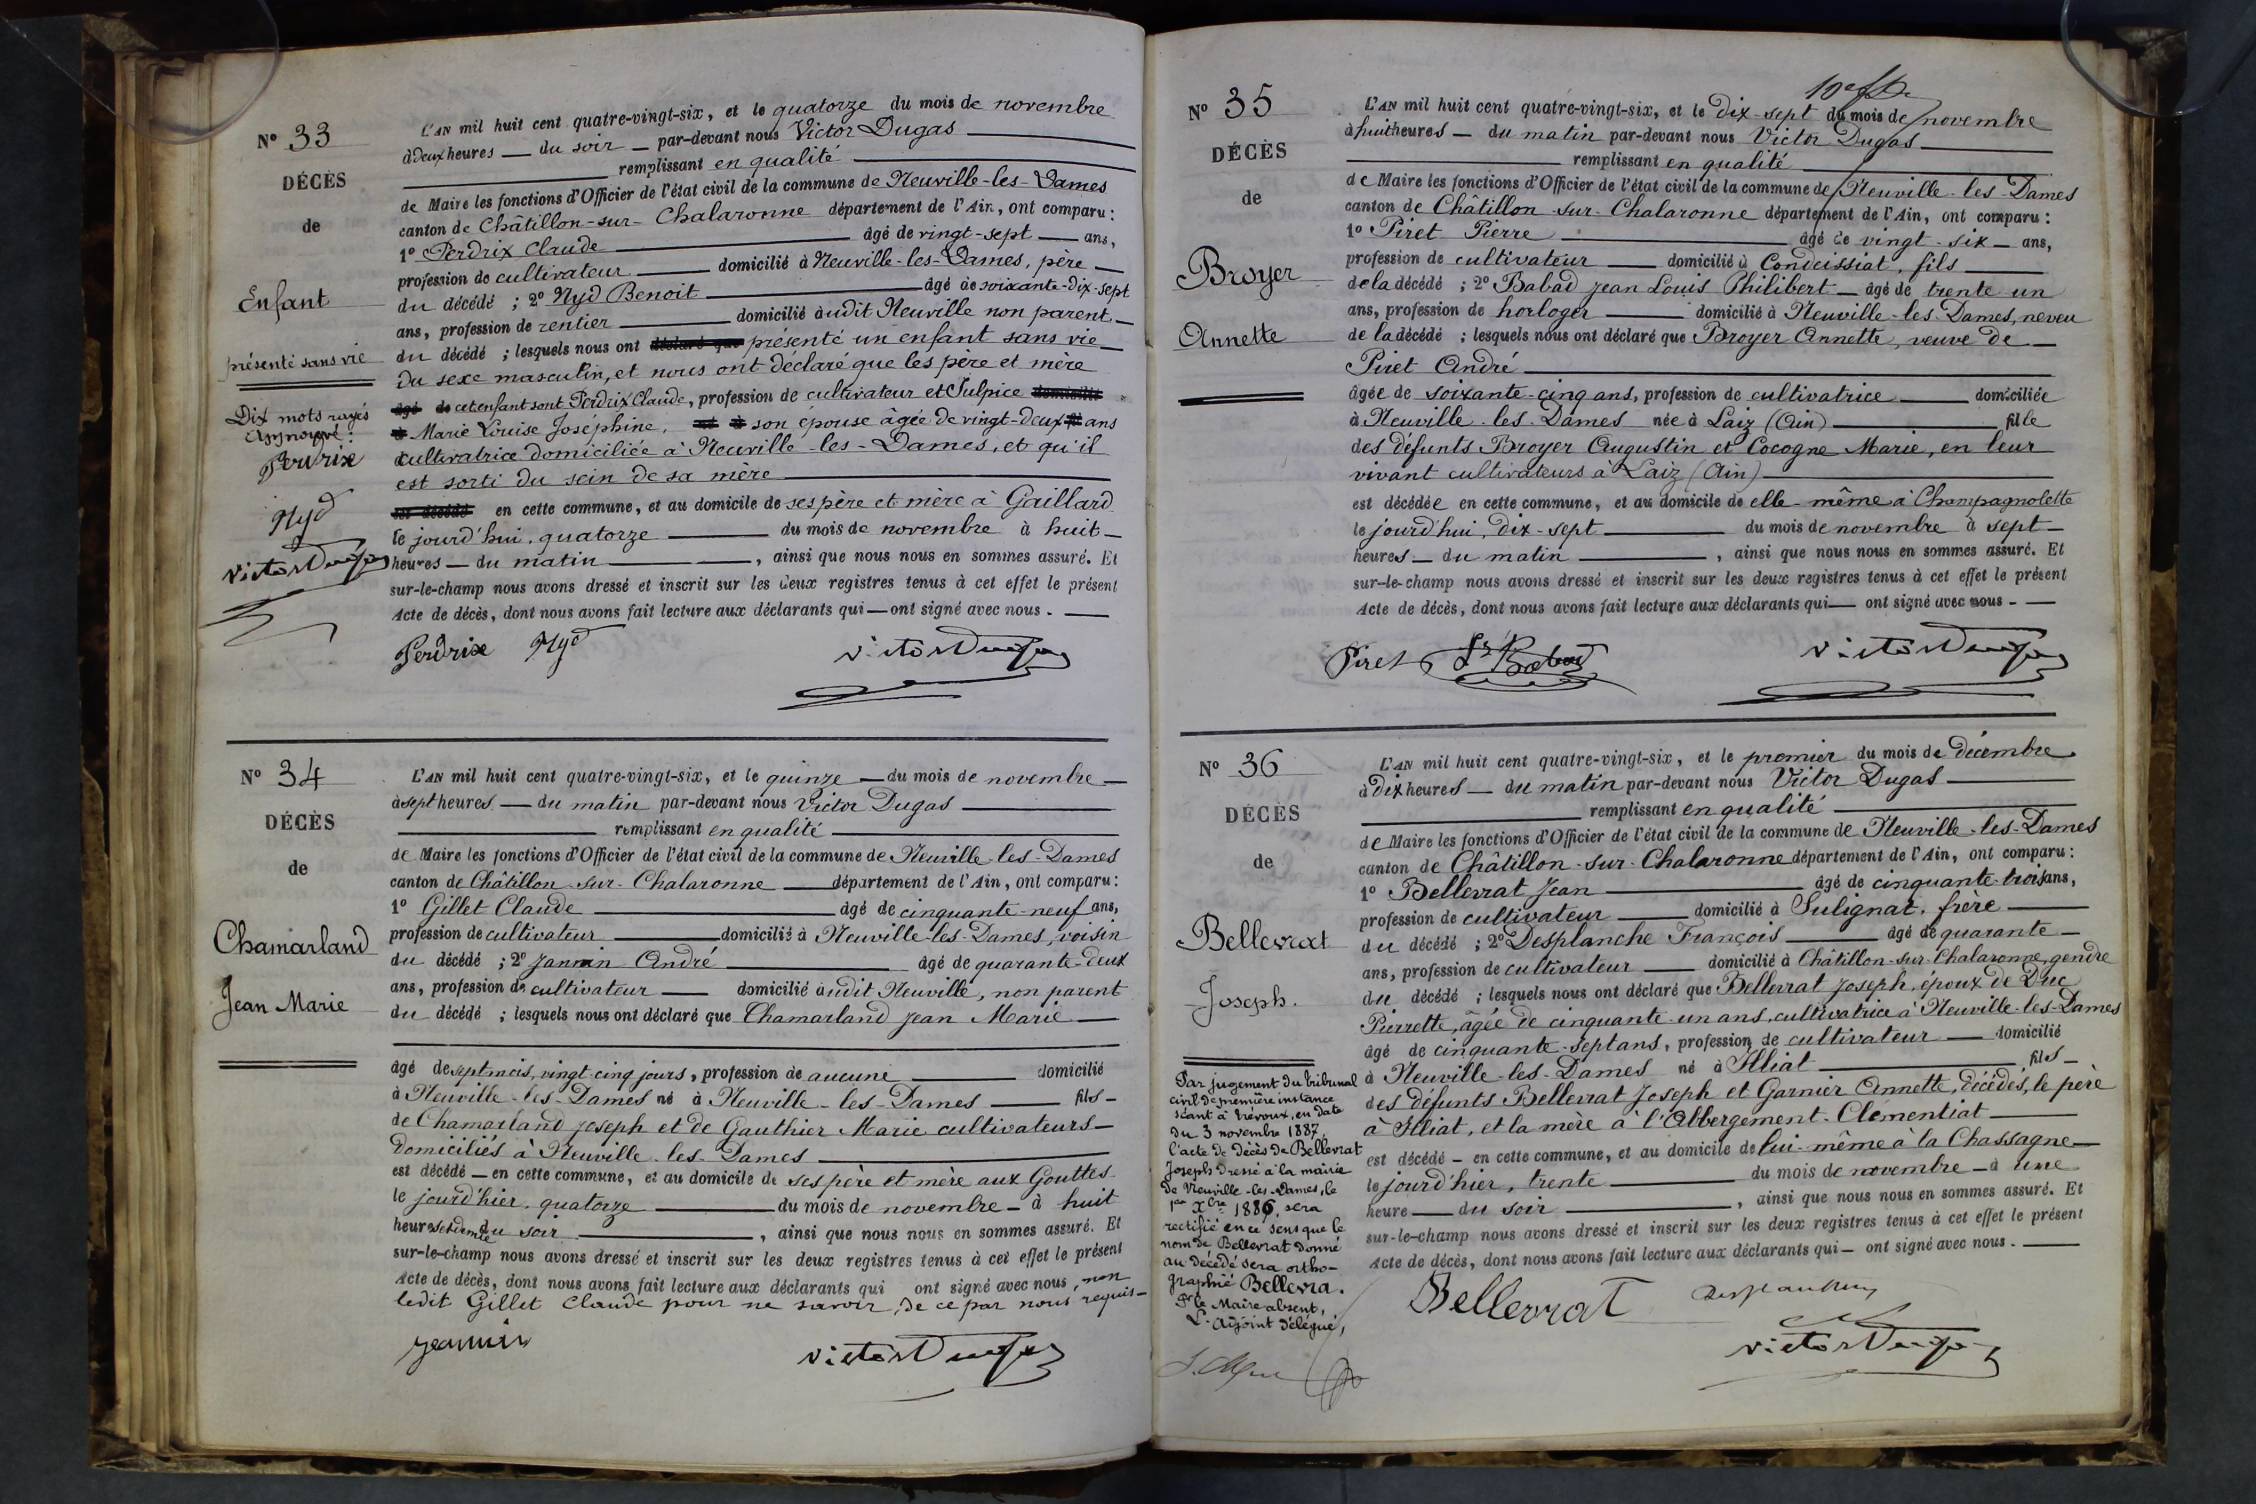 N° 33
DÉCÈS
de
Enfant
présenté sans vie
Dix mots rayés
Approuvé :
Perdrix
Nyd
Victor Dugas
L'AN mil huit cent quatre-vingt-six, et le quatorze du mois de novembre
à deux heures — du soir — par-devant nous Victor Dugas
remplissant en qualité
de Maire les fonctions d'Officier de l'état civil de la commune de Neuville-les-Dames
canton de Châtillon-sur-Chalaronne département de l'Ain, ont comparu :
1° Perdrix Claude âgé de vingt-sept — ans,
profession de cultivateur domicilié à Neuville-les-Dames, père
du décédé ; 2° Nyd Benoit âgé de soixante-dix-sept
ans, profession de rentier domicilié àudit Neuville non parent
du décédé ; lesquels nous ont déclaré que présenté un enfant sans vie
du sexe masculin, et nous ont déclaré que les père et mère
âgé de cet enfant sont Perdrix Claude, profession de cultivateur et Sulpice domicilié
à Marie Louise Joséphine, né à son épouse âgée de vingt-deux ans
cultivatrice domiciliée à Neuville-les-Dames, et qu'il
est sorti du sein de sa mère
est décédé en cette commune, et au domicile de ses père et mère à Gaillard
le jourd'hui, quatorze du mois de novembre à huit
heures — du matin , ainsi que nous nous en sommes assuré. Et
sur-le-champ nous avons dressé et inscrit sur les deux registres tenus à cet effet le présent
Acte de décès, dont nous avons fait lecture aux déclarants qui — ont signé avec nous.
Perdrix Nyd Victor Dugas
N° 34
DÉCÈS
de
Chamarland
Jean Marie
L'AN mil huit cent quatre-vingt-six, et le quinze — du mois de novembre
à sept heures — du matin par-devant nous Victor Dugas
remplissant en qualité
de Maire les fonctions d'Officier de l'état civil de la commune de Neuville-les-Dames
canton de Châtillon-sur-Chalaronne département de l'Ain, ont comparu :
1° Gillet Claude âgé de cinquante-neuf ans,
profession de cultivateur domicilié à Neuville-les-Dames, voisin
du décédé ; 2° Jannin André âgé de quarante-deux
ans, profession de cultivateur domicilié àudit Neuville, non parent
du décédé ; lesquels nous ont déclaré que Chamarland Jean Marie
âgé de sept mois, vingt cinq jours, profession de aucune domicilié
à Neuville-les-Dames né à Neuville-les-Dames fils
de Chamarland Joseph et de Gauthier Marie cultivateurs
domiciliés à Neuville-les-Dames
est décédé — en cette commune, et au domicile de ses père et mère aux Gouttes
le jourd'hier, quatorze du mois de novembre — à huit
heures et demie du soir , ainsi que nous nous en sommes assuré. Et
sur-le-champ nous avons dressé et inscrit sur les deux registres tenus à cet effet le présent
Acte de décès, dont nous avons fait lecture aux déclarants qui ont signé avec nous, non
ledit Gillet Claude pour ne savoir, de ce par nous requis
Jeannin Victor Dugas
N° 35
DÉCÈS
de
Broyer
Annette
L'AN mil huit cent quatre-vingt-six, et le dix-sept du mois de novembre
à huit heures — du matin par-devant nous Victor Dugas
remplissant en qualité
de Maire les fonctions d'Officier de l'état civil de la commune de Neuville-les-Dames
canton de Châtillon-sur-Chalaronne département de l'Ain, ont comparu :
1° Piret Pierre âgé de vingt-six — ans,
profession de cultivateur domicilié à Condeissiat, fils
de la décédé ; 2° Babad Jean Louis Philibert — âgé de trente un
ans, profession de horloger domicilié à Neuville-les-Dames, neveu
de la décédé ; lesquels nous ont déclaré que Broyer Annette, veuve de
Piret André
âgée de soixante-cinq ans, profession de cultivatrice domiciliée
à Neuville-les-Dames née à Laiz (Ain) fille
des défunts Broyer Augustin et Cocogne Marie, en leur
vivant cultivateurs à Laiz (Ain)
est décédée en cette commune, et au domicile de elle-même à Champagnolette
le jourd'hui, dix-sept du mois de novembre à sept
heures — du matin , ainsi que nous nous en sommes assuré. Et
sur-le-champ nous avons dressé et inscrit sur les deux registres tenus à cet effet le présent
Acte de décès, dont nous avons fait lecture aux déclarants qui — ont signé avec nous.
Piret Babad Victor Dugas
N° 36
DÉCÈS
de
Bellevrat
Joseph.
Par jugement du tribunal
civil de première instance
séant à Trévoux, en date
du 3 novembre 1887,
l'acte de décès de Bellevrat
Joseph dressé à la mairie
de Neuville-les-Dames, le
1er Xbre 1886, sera
rectifié en ce sens que le
nom de Bellevrat donné
au décédé sera ortho-
graphié Bellevra.
Pr le Maire absent,
L'Adjoint délégué,
L'AN mil huit cent quatre-vingt-six, et le premier du mois de décembre
à dix heures — du matin par-devant nous Victor Dugas
remplissant en qualité
de Maire les fonctions d'Officier de l'état civil de la commune de Neuville-les-Dames
canton de Châtillon-sur-Chalaronne département de l'Ain, ont comparu :
1° Bellevrat Jean âgé de cinquante-trois ans,
profession de cultivateur domicilié à Sulignat, frère
du décédé ; 2° Desplanche François âgé de quarante
ans, profession de cultivateur domicilié à Châtillon-sur-Chalaronne, gendre
du décédé ; lesquels nous ont déclaré que Bellevrat Joseph, époux de Duc
Pierrette, âgée de cinquante-un ans, cultivatrice à Neuville-les-Dames
âgé de cinquante-sept ans, profession de cultivateur domicilié
à Neuville-les-Dames né à Illiat fils
des défunts Bellevrat Joseph et Garnier Annette, décédés, le père
à Illiat, et la mère à l'Abbergement-Clémentiat
est décédé — en cette commune, et au domicile de lui-même à la Chassagne
le jourd'hier, trente du mois de novembre — à une
heure — du soir , ainsi que nous nous en sommes assuré. Et
sur-le-champ nous avons dressé et inscrit sur les deux registres tenus à cet effet le présent
Acte de décès, dont nous avons fait lecture aux déclarants qui — ont signé avec nous.
Bellevrat Desplanche
Victor Dugas